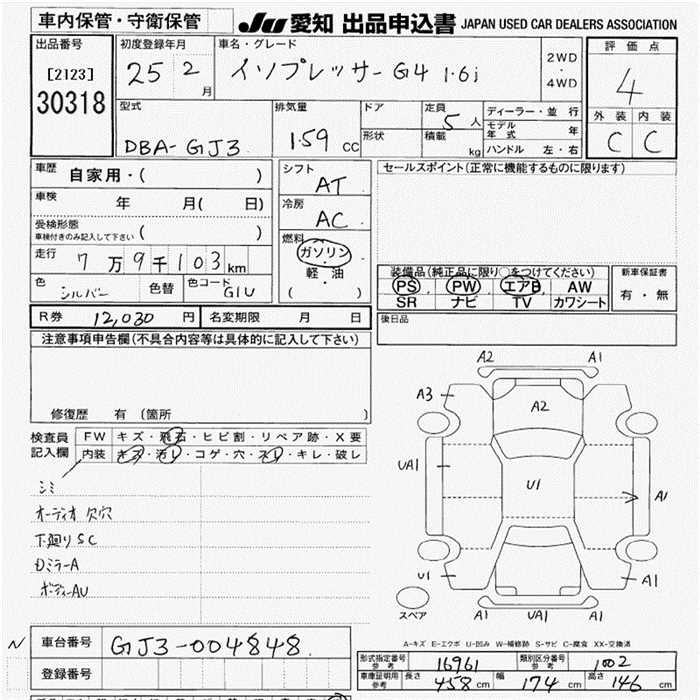 車内保管・守衛保管
JU 愛知 出品申込書 JAPAN USED CAR DEALERS ASSOCIATION
出品番号
[2123]
30318
初度登録年月
25 2 月
車名・グレード
インプレッサーG4 1.6i
2WD
・
4WD
評価点
4
外装 内装
C C
型式
DBA-GJ3
排気量
1.59 cc
ドア
形状
定員
5 人
積載
kg
ディーラー・並行
モデル年式 年
ハンドル 左・右
車歴 自家用・( )
車検 年 月( 日)
受検形態
車検付きのみ記入して下さい ( )
走行 7万9千103km
色 シルバー 色替 色コード G1U
シフト
AT
冷房
AC
燃料
ガソリン
・
軽・油
( )
セールスポイント(正常に機能するものに限ります)
装備品(純正品に限り○をつけてください)
PS PW エアB AW
SR ナビ TV カワシート
新車保証書
有・無
後日品
R券 12,030 円 名変期限 月 日
注意事項申告欄(不具合内容等は具体的に記入して下さい)
修復歴 有 (箇所 )
検査員 FW キズ・飛石・ヒビ割・リペア跡・X要
記入欄 内装 キズ・汚レ・コゲ・穴・スレ・キレ・破レ
シミ
オーディオ欠穴
下廻りSC
DミラーA
ボディーAU
A2 A1
A3 A2
UA1 U1 A1
U1 A1
スペア A1 UA1 A1
A-キズ E-エクボ U-凹み W-補修跡 S-サビ C-腐食 XX-交換済
N 車台番号 GJ3-004848
登録番号
形式指定番号 参考 16961 類別区分番号 参考 1002
車庫証明用 参考 長さ 458 cm 幅 174 cm 高さ 146 cm